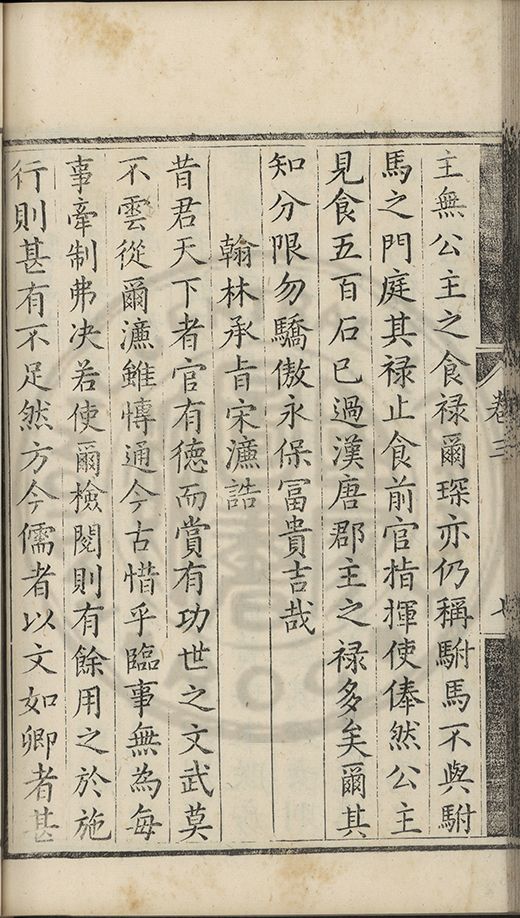 卷三
七
主無公主之食禄爾琛亦仍稱駙馬不與駙
馬之門庭其禄止食前官指揮使俸然公主
見食五百石已過漢唐郡主之禄多矣爾其
知分限勿驕傲永保冨貴吉哉
翰林承旨宋濂誥
昔君天下者官有德而賞有功世之文武莫
不雲從爾濂雖博通今古惜乎臨事無為每
事牽制弗決若使爾檢閱則有餘用之於施
行則甚有不足然方今儒者以文如卿者甚